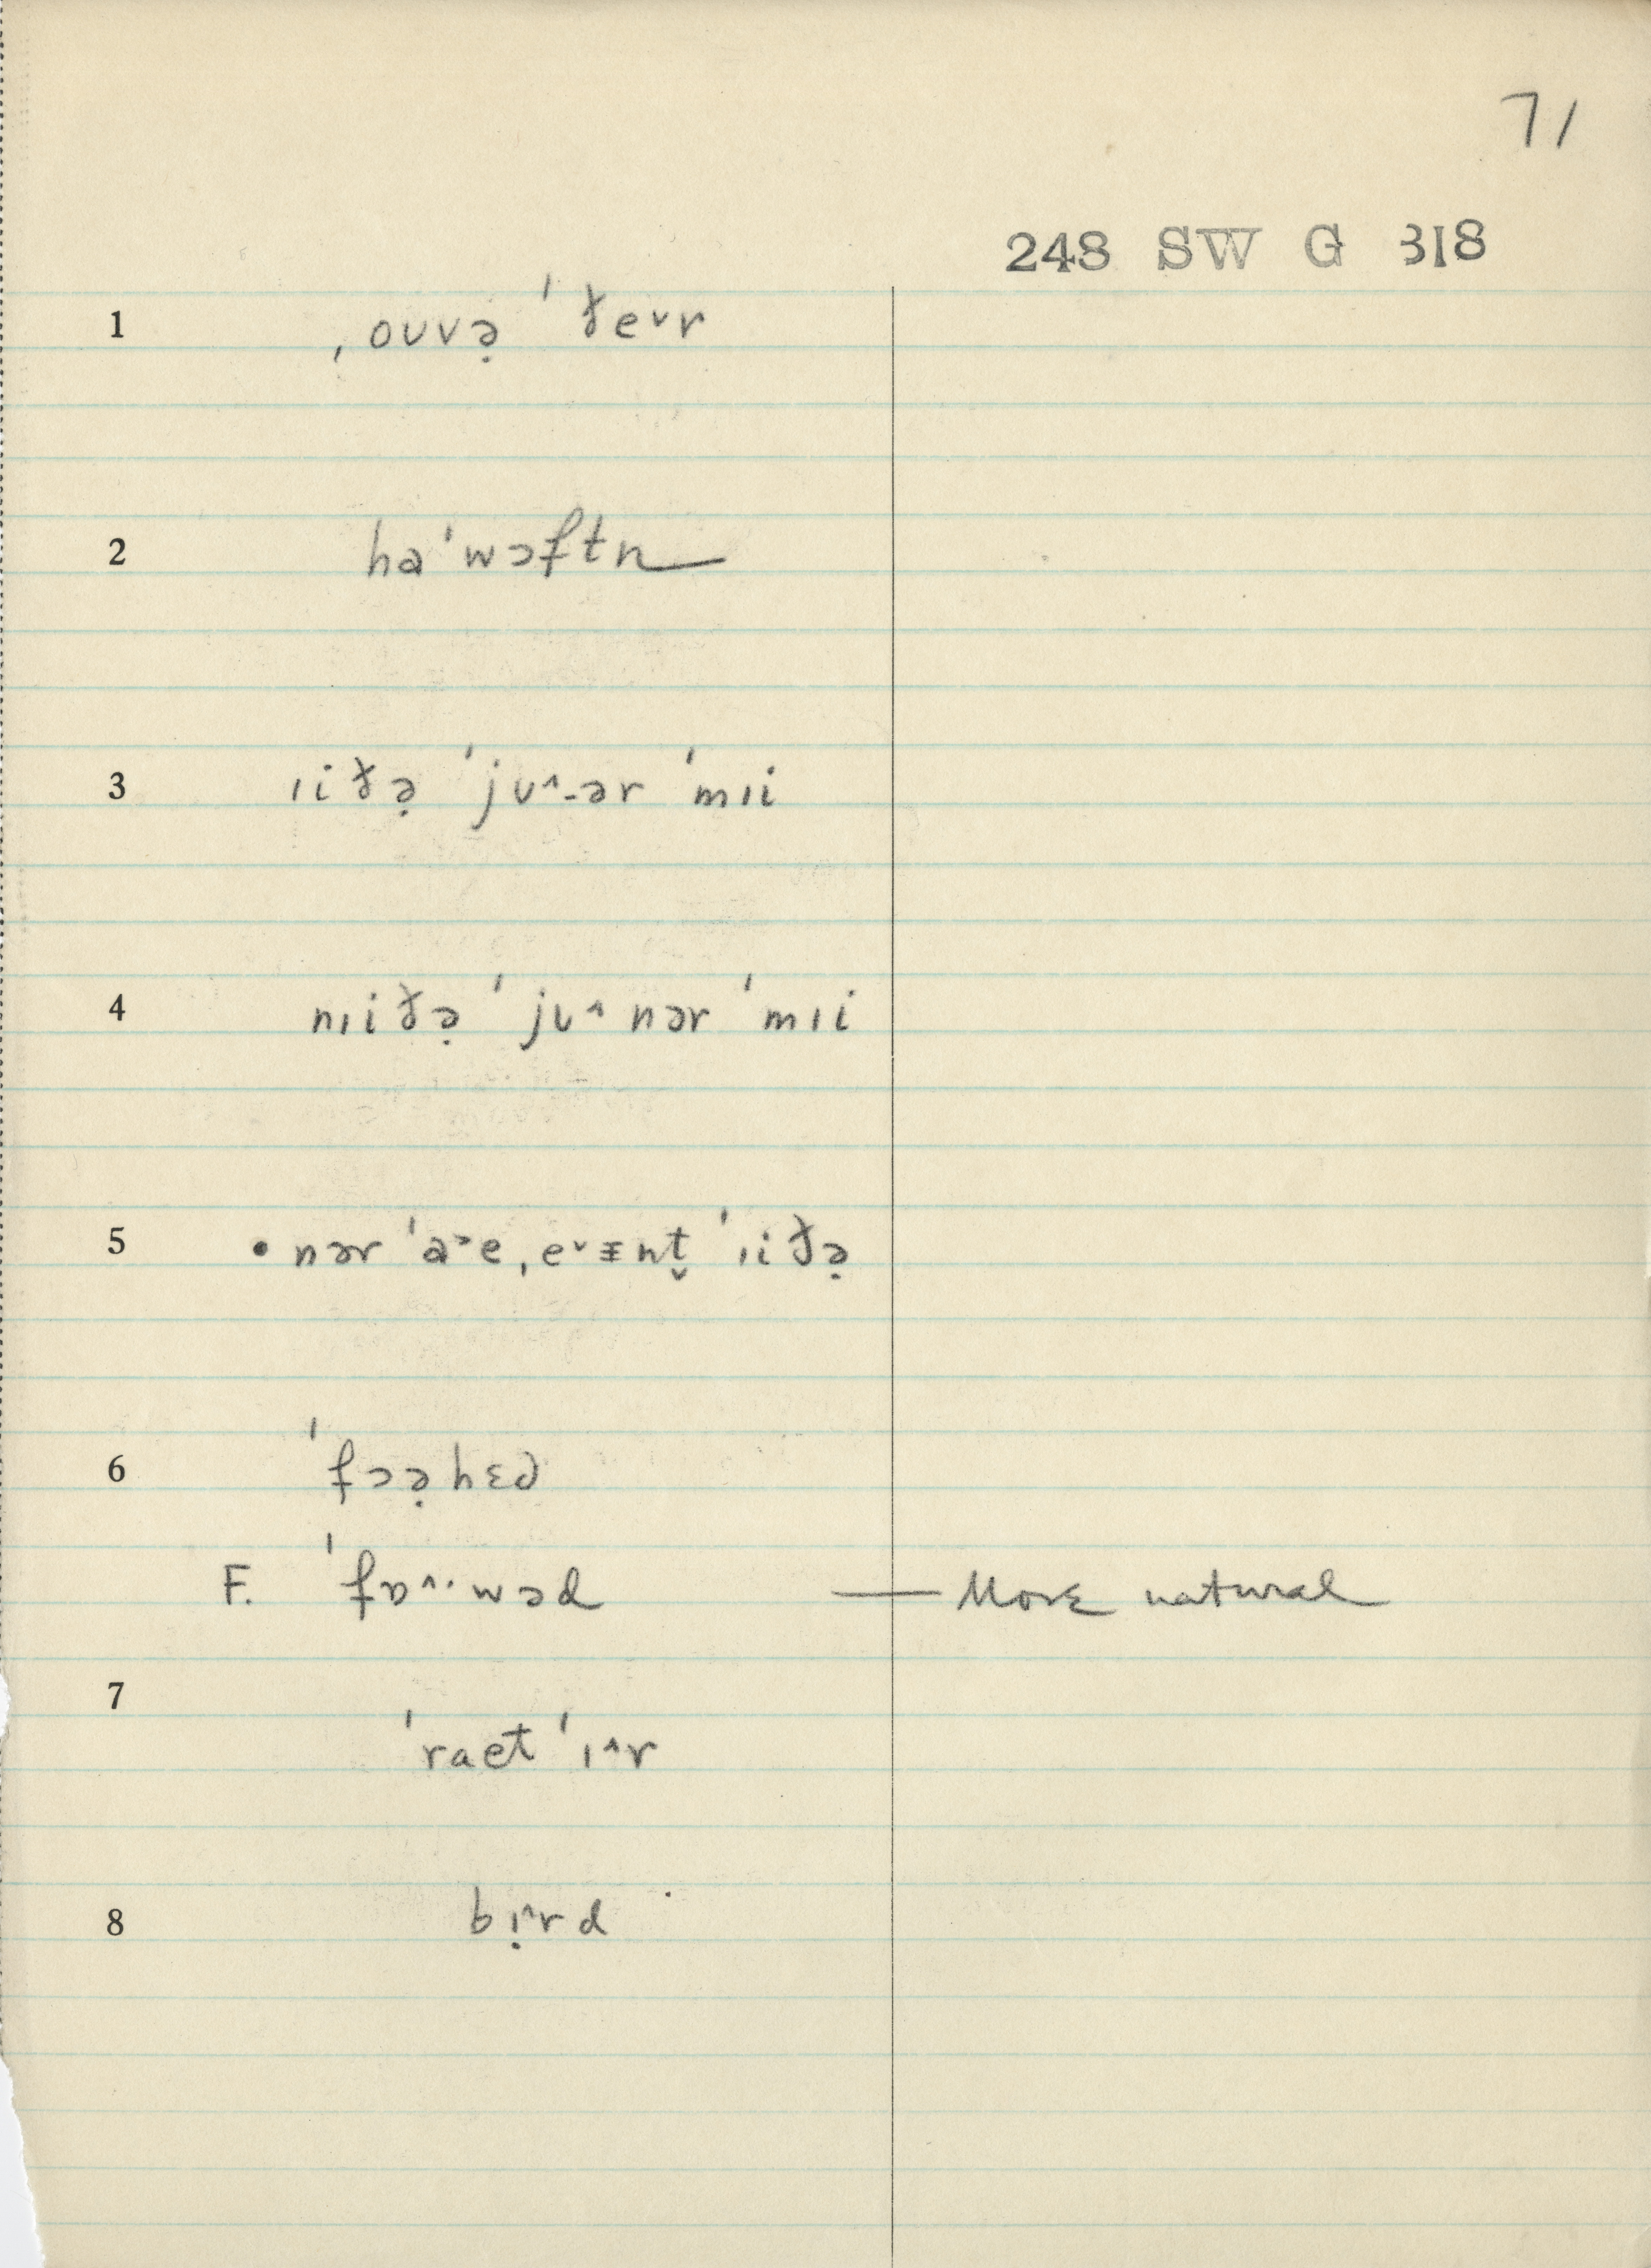 71
248 SW G 318
1 ˌoʊvə̣ ˈðe˅r
2 haˈwɔftn
3 ɪiðə̣ ˈjʊ^-ər ˈmɪi
4 nɪiðə̣ ˈjʊ^nər ˈmɪi
5 • nər ˈa˃e ˌe˅ɪ̵nt̬ ˈɪiðə̣
6 ˈfɔə̣hɛd
F. ˈfɒ^·wəd — More natural
7 ˈraet ˈɪ^r
8 bɪ̣^rd